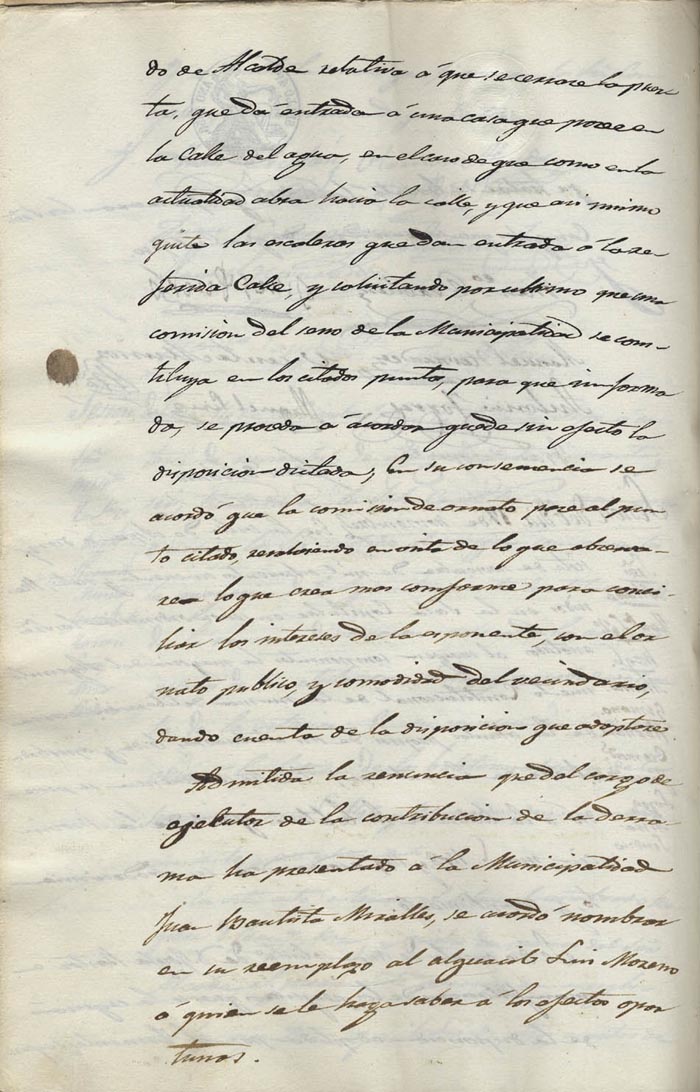 do de Alcalde relativa á que se cerrare la puer
ta, que dá entrada á una casa que posee en
la Calle del agua, en el caso de que como en la
actualidad abra hacia la calle, y que asi mismo
quite las escaleras que dan entrada á la re
ferida Calle, y solicitando por ultimo que una
comision del seno de la Municipalidad se cons-
tituya en los citados puntos, para que informa
da, se proceda á acordar quede sin efecto la
disposicion dictada; En su consecuencia se
acordó que la comision de ornato pase al pun
to citado, resolviendo en vista de lo que observa-
re lo que crea mas comforme para conci-
liar los intereses de la esponente, con el or
nato publico, y comodidad del vecindario,
dando cuenta de la disposicion que adoptare
Admitida la renuncia que del cargo de
ejecutor de la contribucion de la derra
ma ha presentado á la Municipalidad
Juan Bautista Miralles, se acordó nombrar
en su reemplazo al alguacil Luis Moreno
á quien se le haga saber á los efectos opor
tunos.